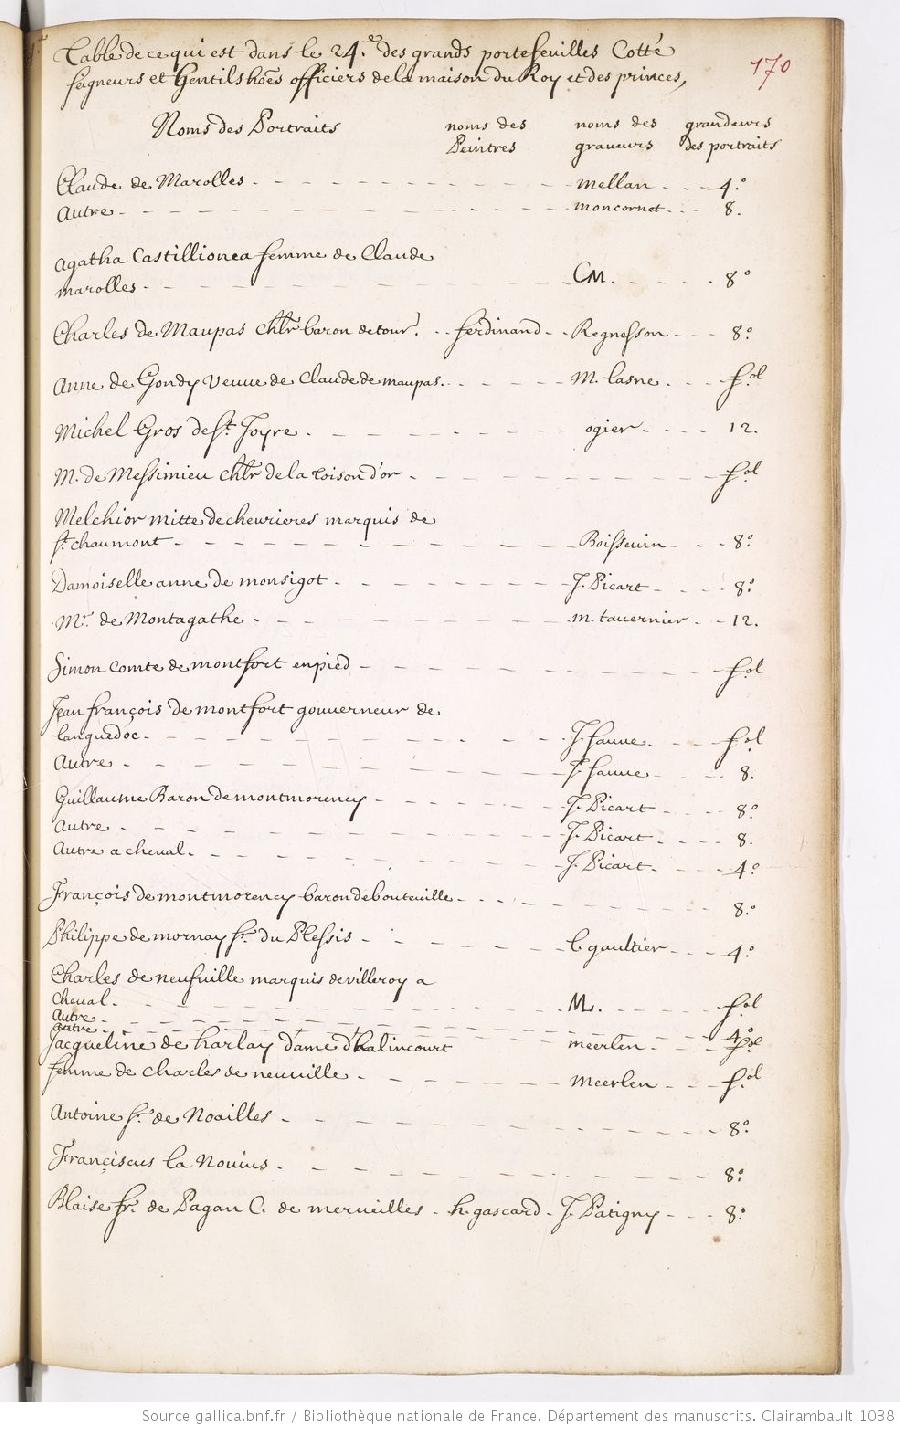 Table de ce qui est dans le 24.e des grands portefeuilles Cotté
seigneurs et Gentilshoēs officiers de la maison du Roy et des princes,
170
Noms des Portraits noms des Peintres noms des graveurs grandeurs des portraits
Claude de Marolles - mellan - 4.o
Autre - moncornet - 8.
Agatha Castillionea femme de Claude
marolles - CM. - 8o
Charles de Maupas chlr baron du tour. - ferdinand - Regnesson - 8.o
Anne de Gondy veuue de Claude de maupas. - M. lasne - fol
Michel Gros de St. Joyre - ogier - 12.
M. de Messimieu chlr de la toison d'or - fol
Melchior mitte de cheurieres marquis de
st. chaumont - Boisseuin - 8.o
Damoiselle anne de monsigot - J. Picart - 8.o
Mr. de Montagathe - m. tauernier - 12.
Simon comte de montfort en pied - fol
Jean françois de montfort gouuerneur de
languedoc - J. fauue - fol
Autre - J. fauue - 8.
Guillaume Baron de montmorency - J. Picart - 8.o
Autre - J. Picart - 8.
Autre a cheual - J. Picart - 4.o
François de montmorency baron de bouteuille - 8.o
Philippe de mornay sr. du Plessis - l. gaultier - 4.o
Charles de neufuille marquis de villeroy a
cheual - M. - fol
Autre - 4.o
autre - fol
Jacqueline de harlay dame d'halincourt meerlen
femme de charles de neuuille - meerlen - fol
Antoine sr. de Noailles - 8.o
Franciscus la Nouius - 8.o
Blaise fr. de Pagan C. de merueilles - h. gascard - J. Patigny - 8.o
Source gallica.bnf.fr / Bibliothèque nationale de France. Département des manuscrits. Clairambault 1038